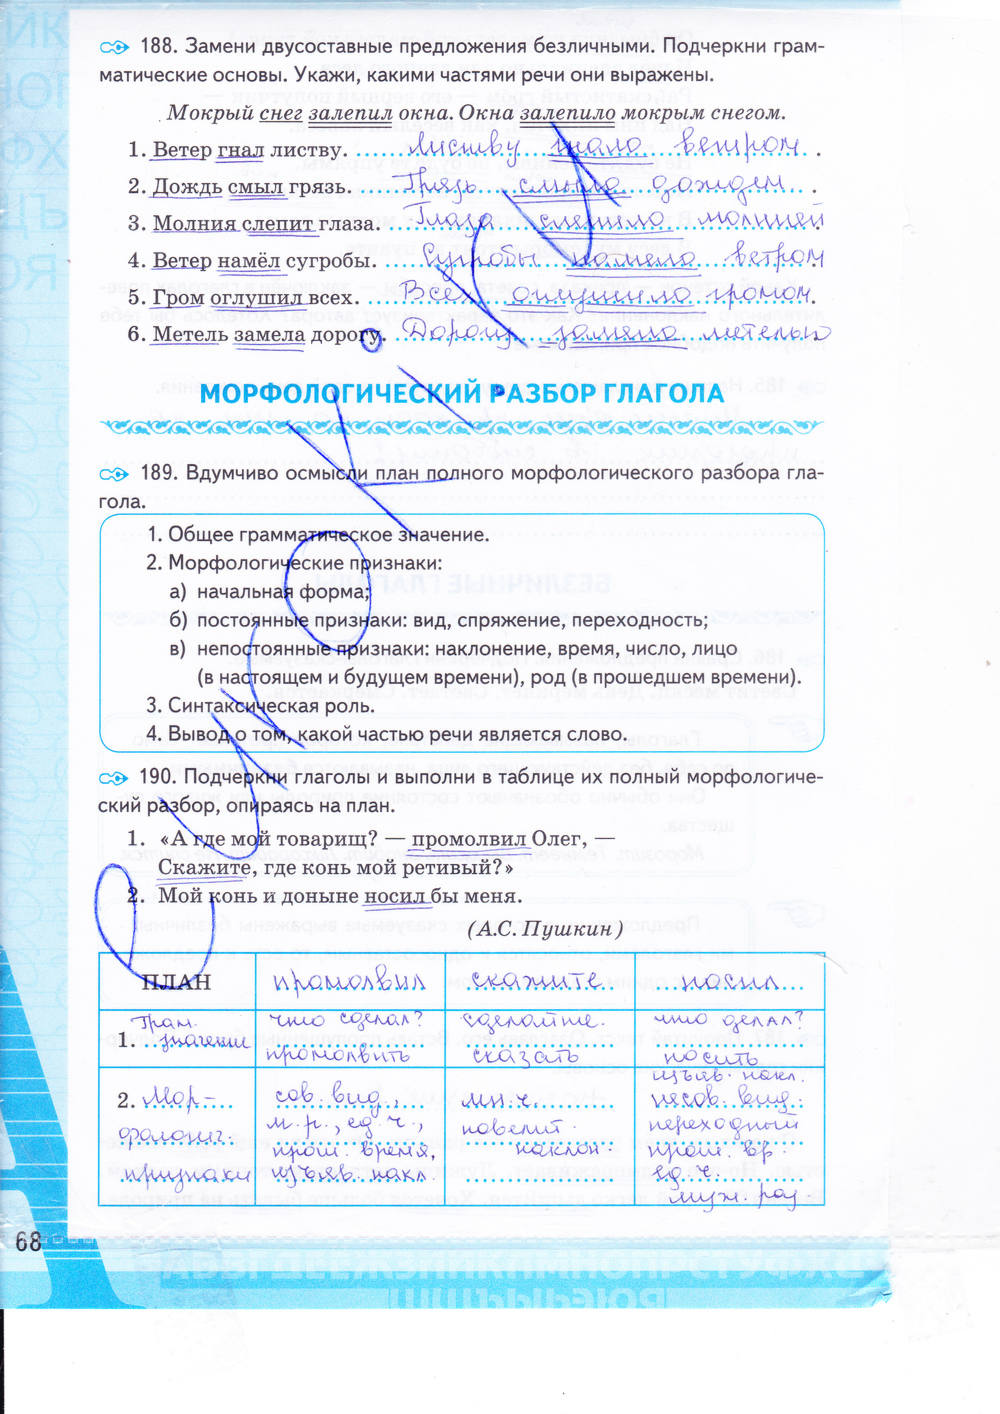 188. Замени двусоставные предложения безличными. Подчеркни грам-
матические основы. Укажи, какими частями речи они выражены.
Мокрый снег залепил окна. Окна залепило мокрым снегом.
1. Ветер гнал листву. Листву гнало ветром.
2. Дождь смыл грязь. Грязь смыло дождём.
3. Молния слепит глаза. Глаза слепило молнией.
4. Ветер намёл сугробы. Сугробы намело ветром
5. Гром оглушил всех. Всех оглушило громом.
6. Метель замела дорогу. Дорогу замело метелью
МОРФОЛОГИЧЕСКИЙ РАЗБОР ГЛАГОЛА
189. Вдумчиво осмысли план полного морфологического разбора гла-
гола.
1. Общее грамматическое значение.
2. Морфологические признаки:
а) начальная форма;
б) постоянные признаки: вид, спряжение, переходность;
в) непостоянные признаки: наклонение, время, число, лицо
(в настоящем и будущем времени), род (в прошедшем времени).
3. Синтаксическая роль.
4. Вывод о том, какой частью речи является слово.
190. Подчеркни глаголы и выполни в таблице их полный морфологиче-
ский разбор, опираясь на план.
1. «А где мой товарищ? — промолвил Олег, —
Скажите, где конь мой ретивый?»
2. Мой конь и доныне носил бы меня.
(А.С. Пушкин)
ПЛАН промолвил скажите носил
Грам. что сделал? сделайте. что делал?
1. значение промолвить сказать носить
изъяв. накл.
2. Мор- сов. вид, мн.ч. несов. вид.
фологич. м.р., ед.ч., повелит. переходный
прош. время, наклон. прош. вр.
признаки изъяв. накл. ед.ч.
муж. род
68